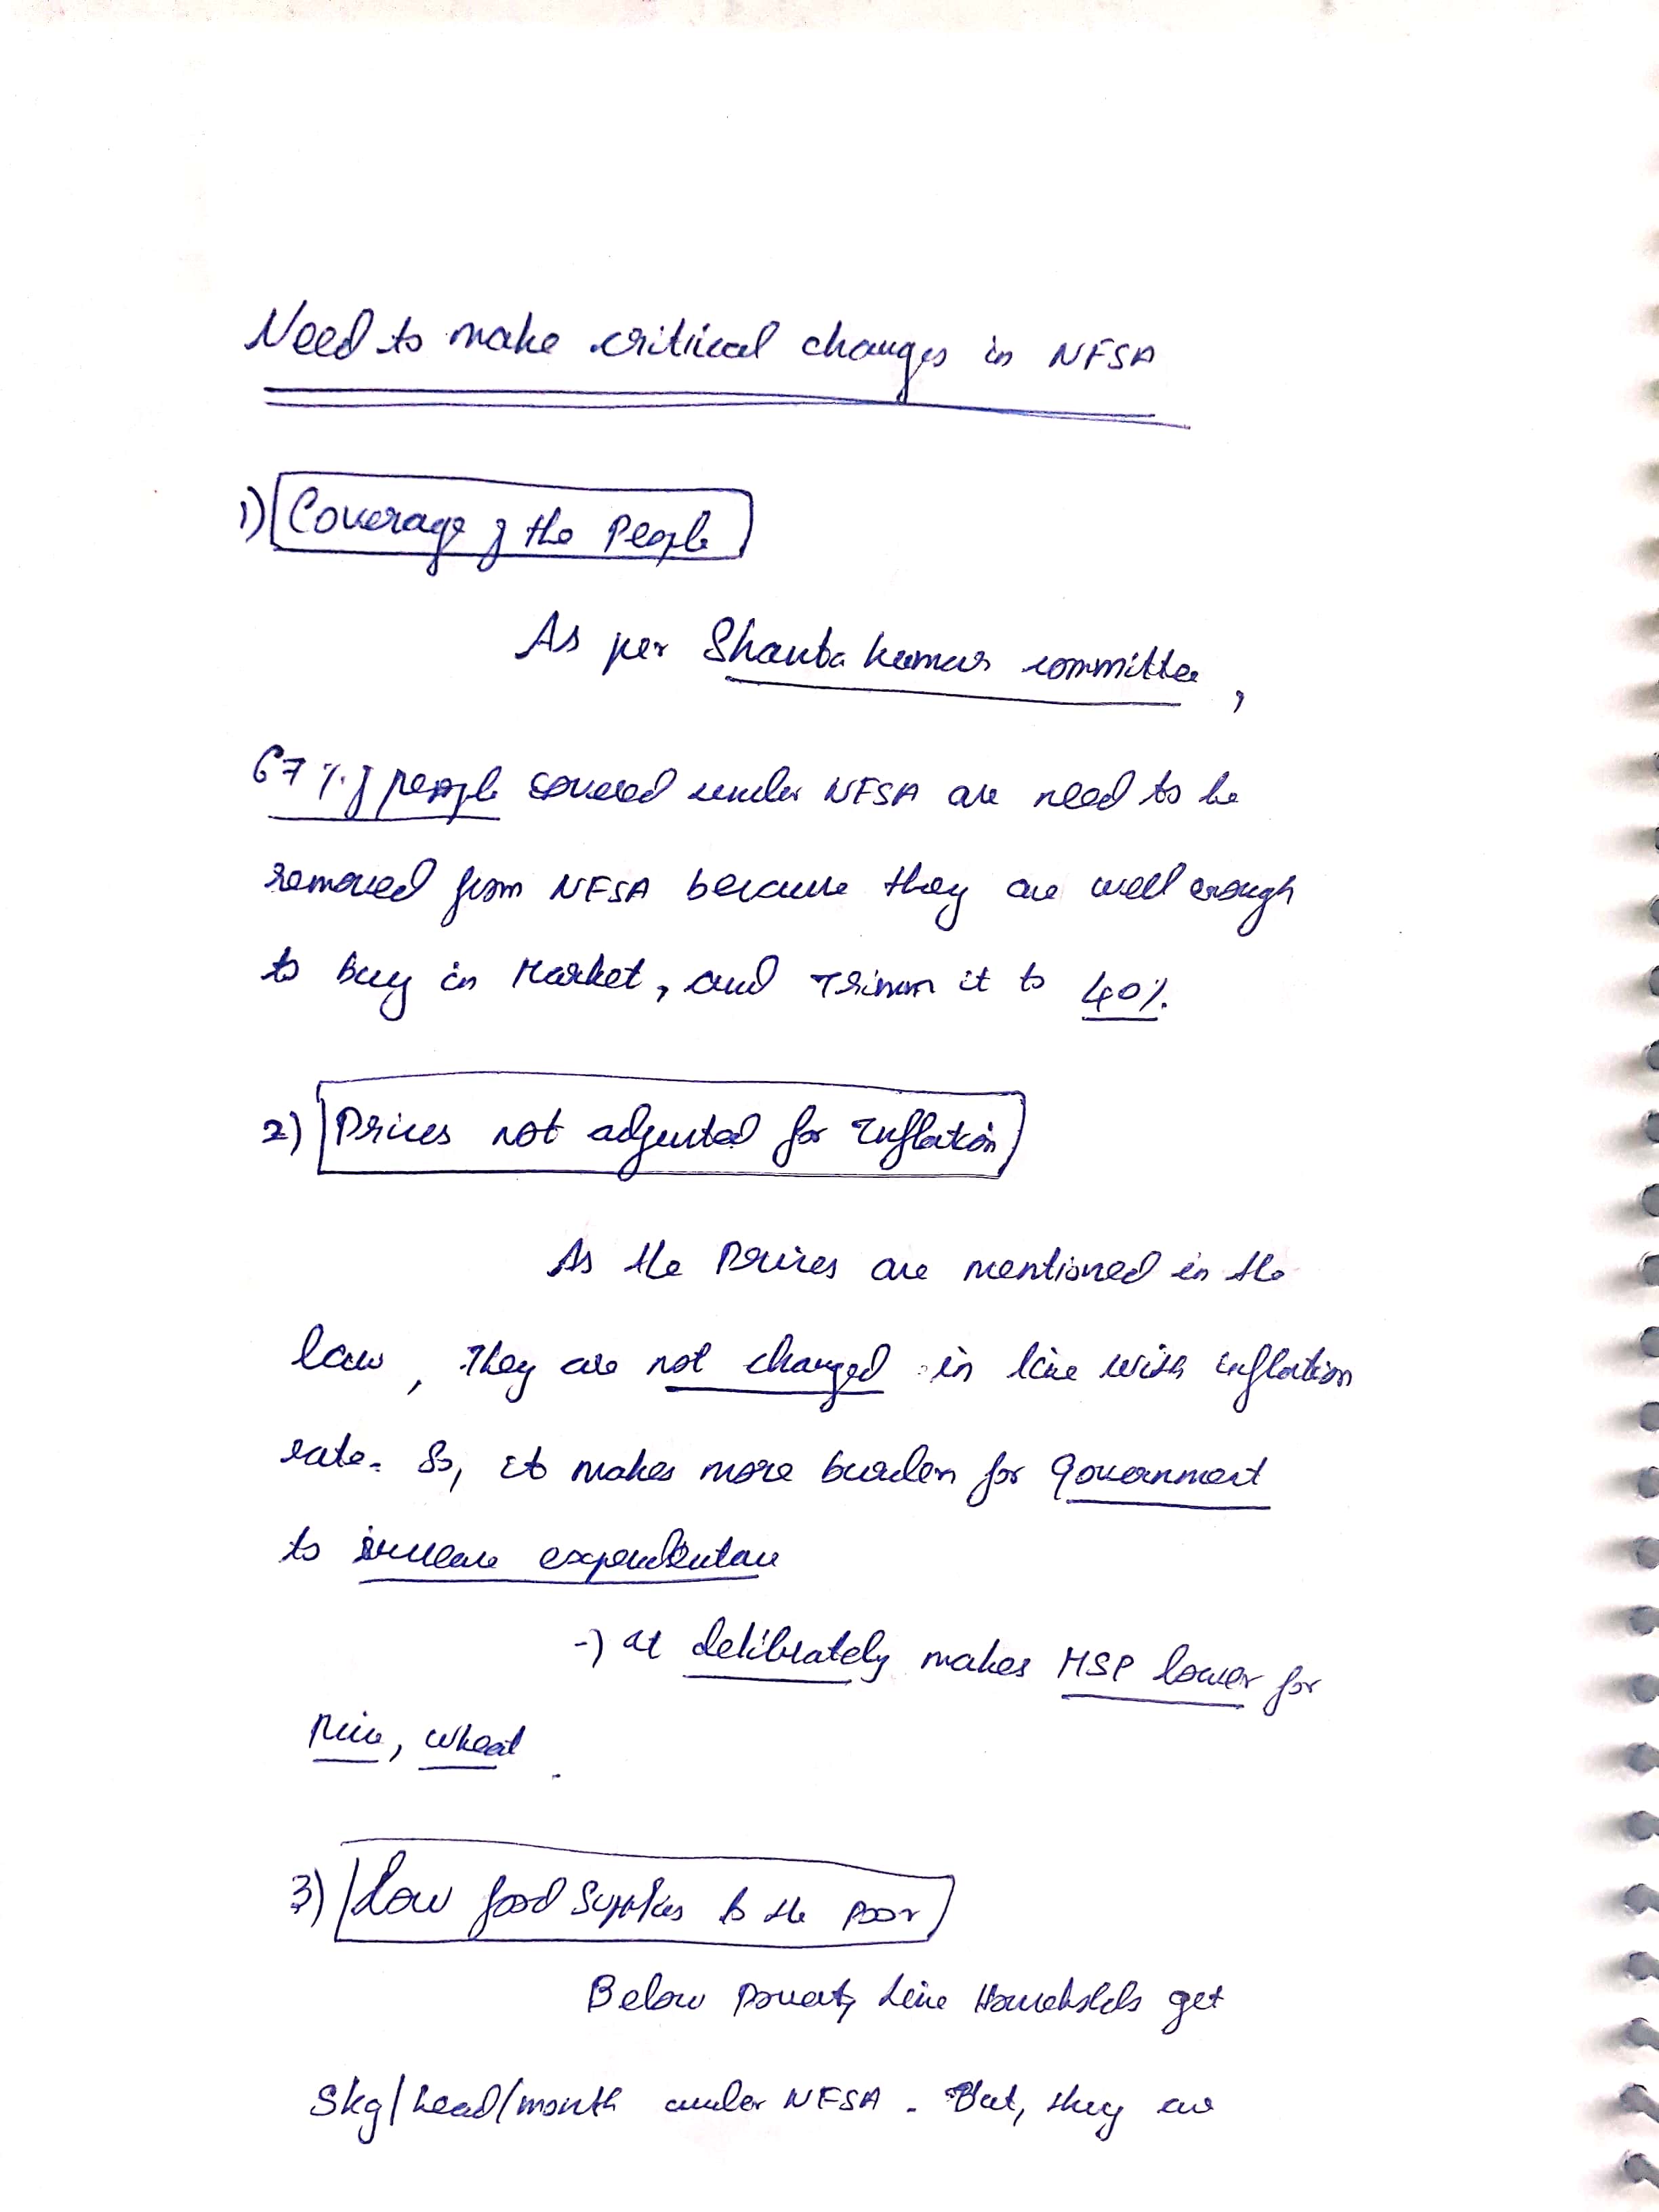 Need to make critical changes in NFSA
1) Coverage of the People
As per Shanta kumar committee,
67% of people covered under NFSA are need to be
removed from NFSA because they are well enough
to buy in Market, and Trimm it to 40%.
2) Prices not adjusted for Inflation
As the Prices are mentioned in the
law, They are not changed in line with inflation
rate. So, it makes more burden for government
to increase expenditure
-) It delibrately makes MSP lower for
Rice, wheat.
3) Low food Supplies to the poor
Below Poverty Line Households get
5kg/head/month under NFSA. But, they are